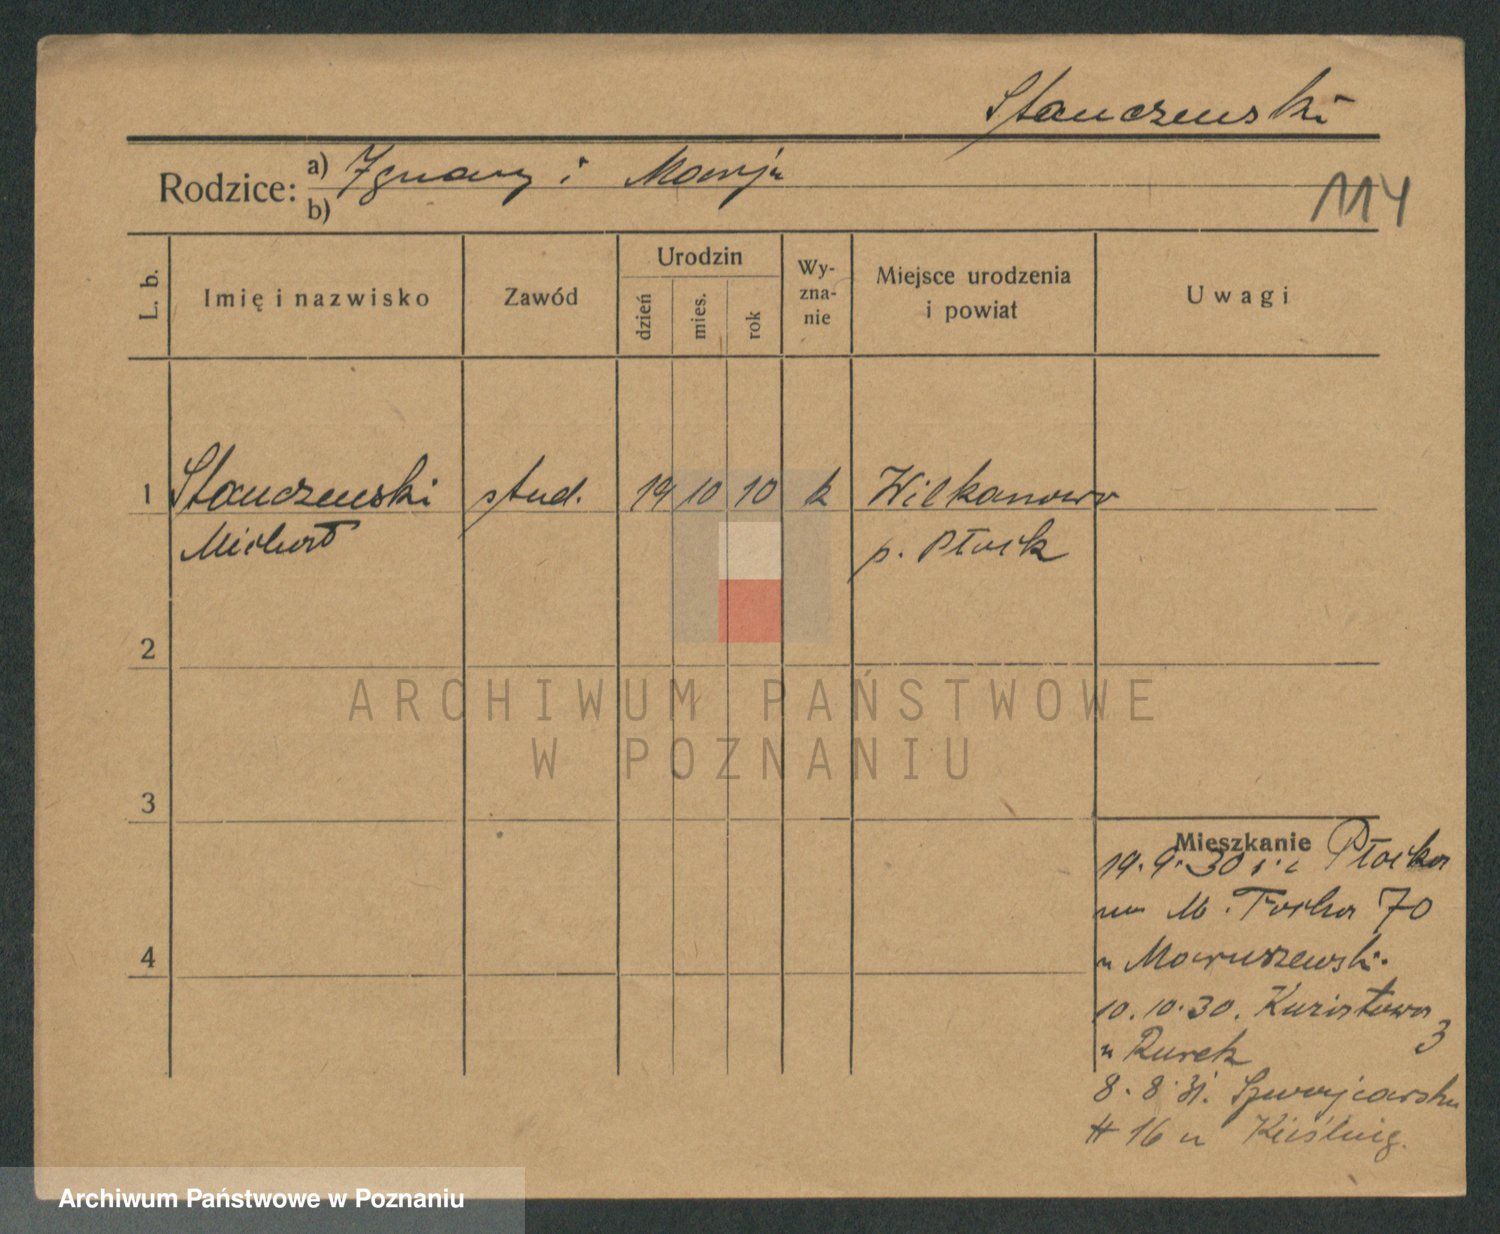 Stanczewski
Rodzice: a) Ignacy i Marja
b)
114
L. b.
Imię i nazwisko
Zawód
Urodzin
dzień
mies.
rok
Wy-
zna-
nie
Miejsce urodzenia
i powiat
Uwagi
1 Stanczewski stud. 19 10 10 k Wilkanowo
Michał p. Płock
2
ARCHIWUM PAŃSTWOWE
W POZNANIU
3
Mieszkanie
19.9.30 Płocka
M. Focha 70
u Maruszewski.
10.10.30.
3
u Rurek
8.8.31. Szwajcarska
16 u Kieślnig.
4
Archiwum Państwowe w Poznaniu